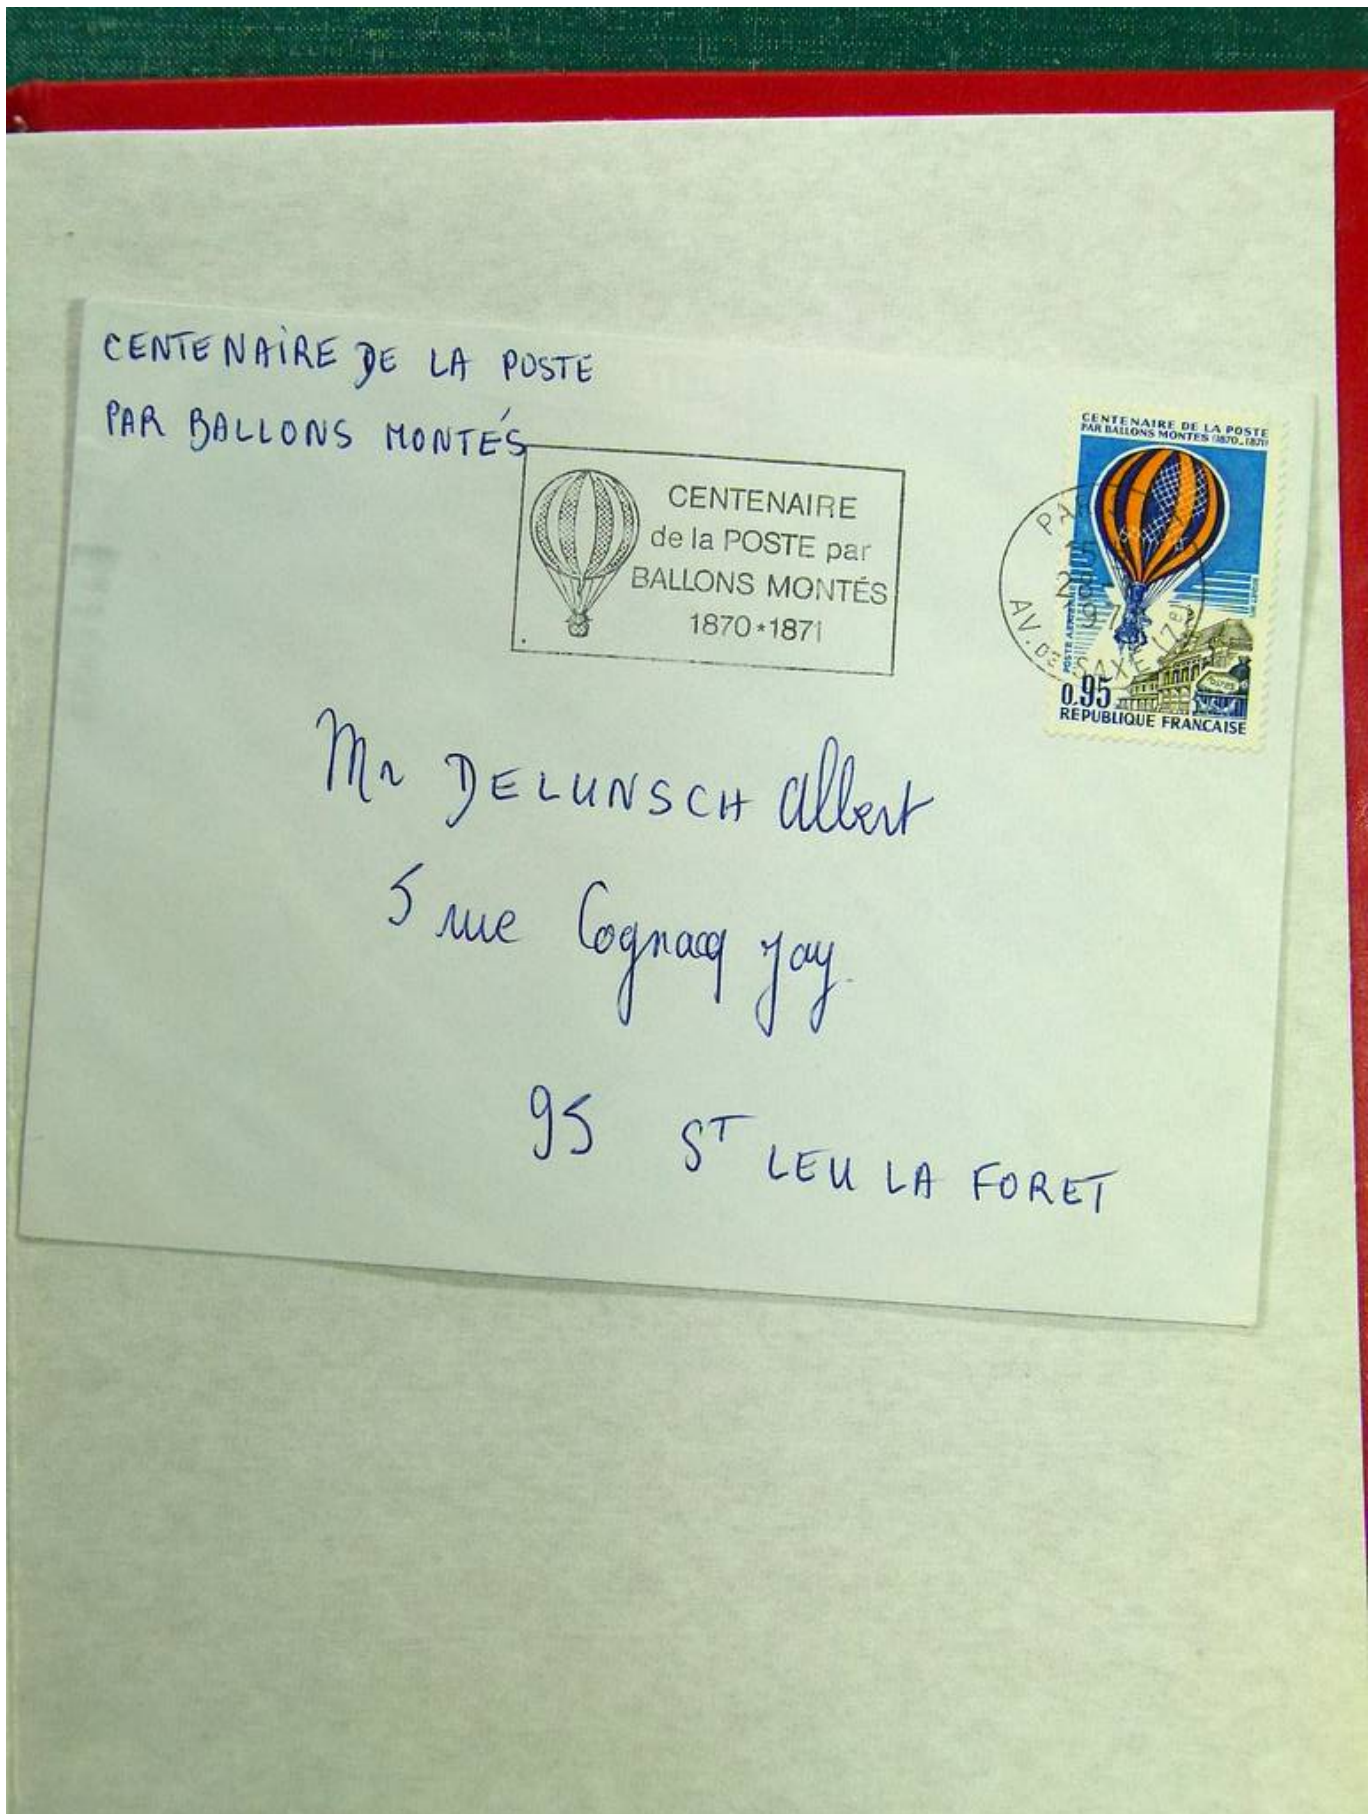 CENTENAIRE DE LA POSTE
PAR BALLONS MONTÉS
CENTENAIRE
de la POSTE par
BALLONS MONTÉS
1870*1871
CENTENAIRE DE LA POSTE
PAR BALLONS MONTES (1870-1871)
POSTE
0,95
POSTES
REPUBLIQUE FRANCAISE
15
AV. DE SAXE (7e)
Mr DELUNSCH Albert
5 rue Cognacq Jay
95 ST LEU LA FORET